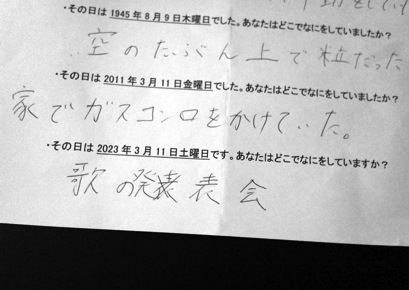 ・その日は 1945年8月9日木曜日でした。あなたはどこでなにをしていましたか?
空のたぶん上で粒だった
・その日は 2011年3月11日金曜日でした。あなたはどこでなにをしていましたか?
家でガスコンロをかけていた。
・その日は 2023年3月11日土曜日です。あなたはどこでなにをしていますか?
歌の発表会